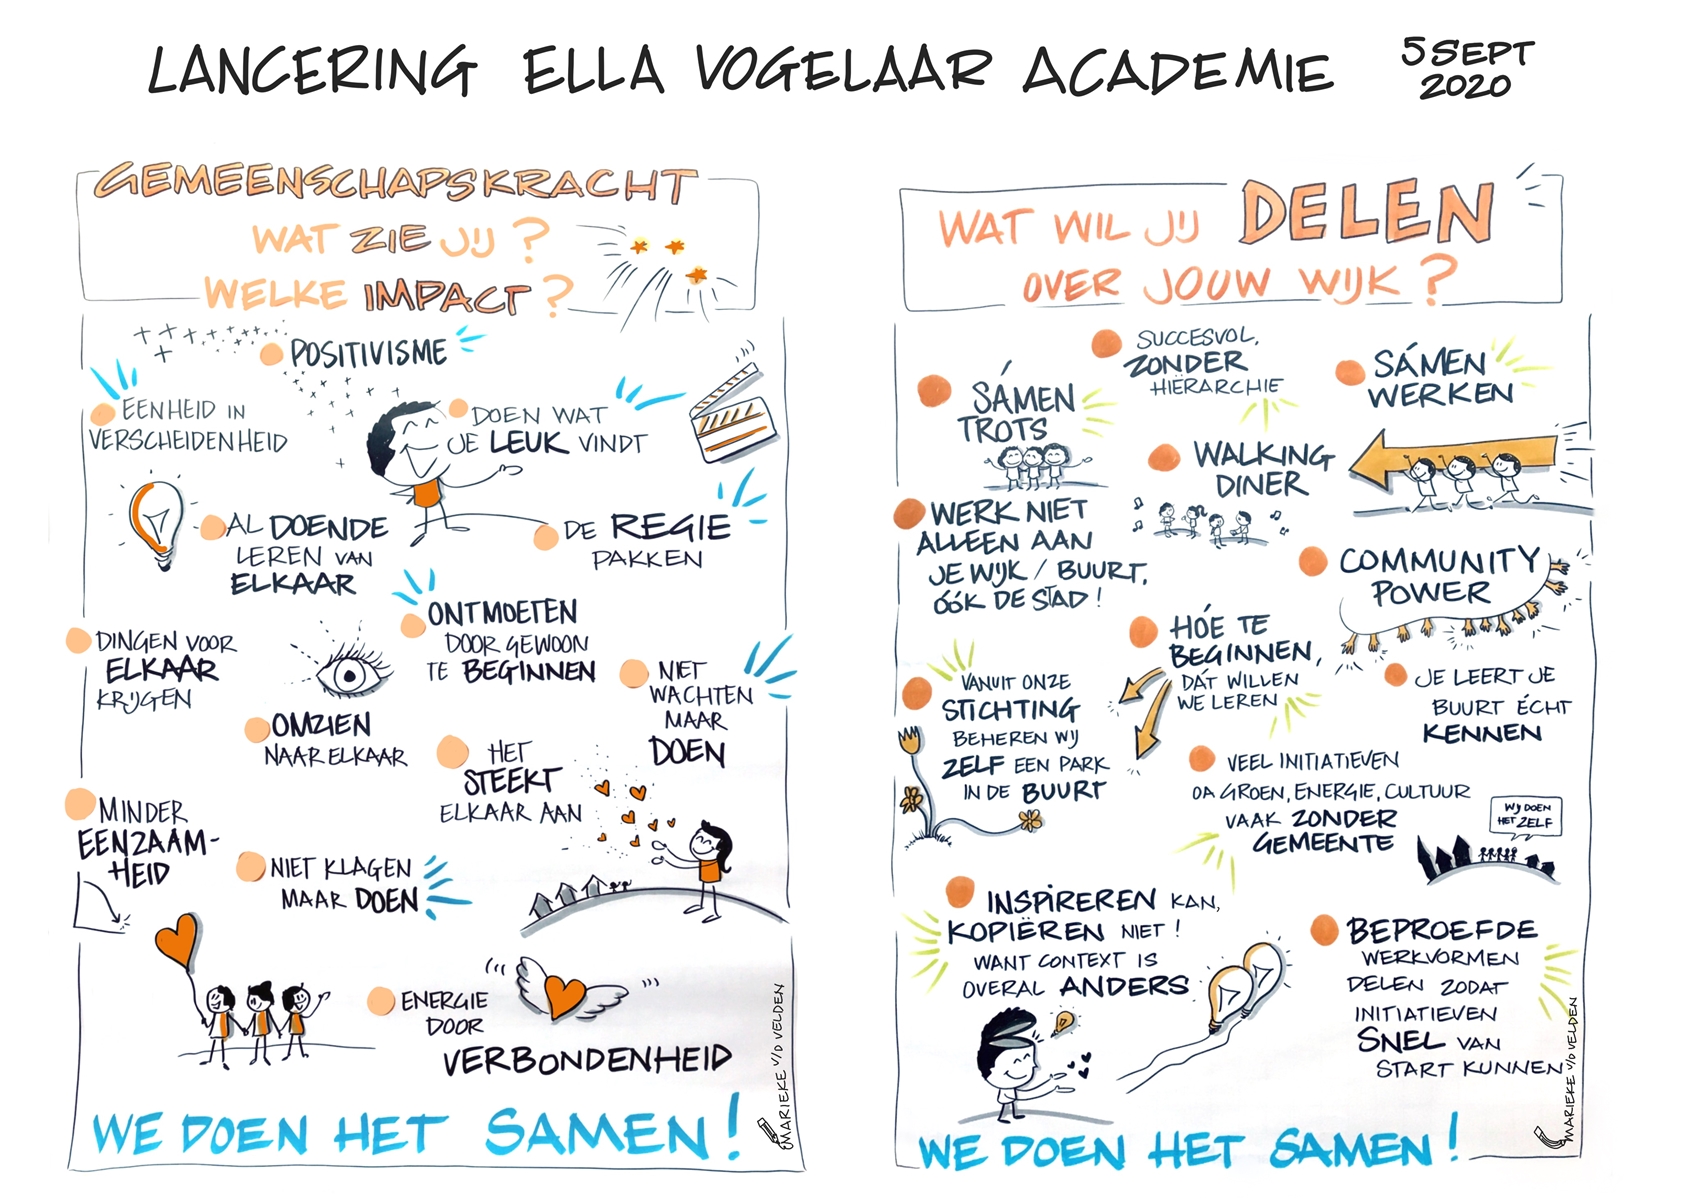 LANCERING ELLA VOGELAAR ACADEMIE
5 SEPT
2020
GEMEENSCHAPSKRACHT
WAT ZIE JIJ?
WELKE IMPACT?
POSITIVISME
EENHEID IN
VERSCHEIDENHEID
DOEN WAT
JE LEUK VINDT
AL DOENDE
LEREN VAN
ELKAAR
DE REGIE
PAKKEN
ONTMOETEN
DOOR GEWOON
TE BEGINNEN
DINGEN VOOR
ELKAAR
KRIJGEN
NIET
WACHTEN
MAAR
DOEN
OMZIEN
NAAR ELKAAR
HET
STEEKT
ELKAAR AAN
MINDER
EENZAAM-
HEID
NIET KLAGEN
MAAR DOEN
ENERGIE
DOOR
VERBONDENHEID
WE DOEN HET SAMEN!
MARIEKE V/D VELDEN
WAT WIL JIJ DELEN
OVER JOUW WIJK?
SUCCESVOL,
ZONDER
HIËRARCHIE
SÁMEN
TROTS
SÁMEN
WERKEN
WALKING
DINER
WERK NIET
ALLEEN AAN
JE WIJK / BUURT,
ÓÓK DE STAD!
COMMUNITY
POWER
HÓE TE
BEGINNEN,
DÁT WILLEN
WE LEREN
VANUIT ONZE
STICHTING
BEHEREN WIJ
ZELF EEN PARK
IN DE BUURT
JE LEERT JE
BUURT ÉCHT
KENNEN
VEEL INITIATIEVEN
OA GROEN, ENERGIE, CULTUUR
VAAK ZONDER
GEMEENTE
WIJ DOEN
HET ZELF
INSPIREREN KAN,
KOPIËREN NIET!
WANT CONTEXT IS
OVERAL ANDERS
BEPROEFDE
WERKVORMEN
DELEN ZODAT
INITIATIEVEN
SNEL VAN
START KUNNEN
WE DOEN HET SAMEN!
MARIEKE V/D VELDEN